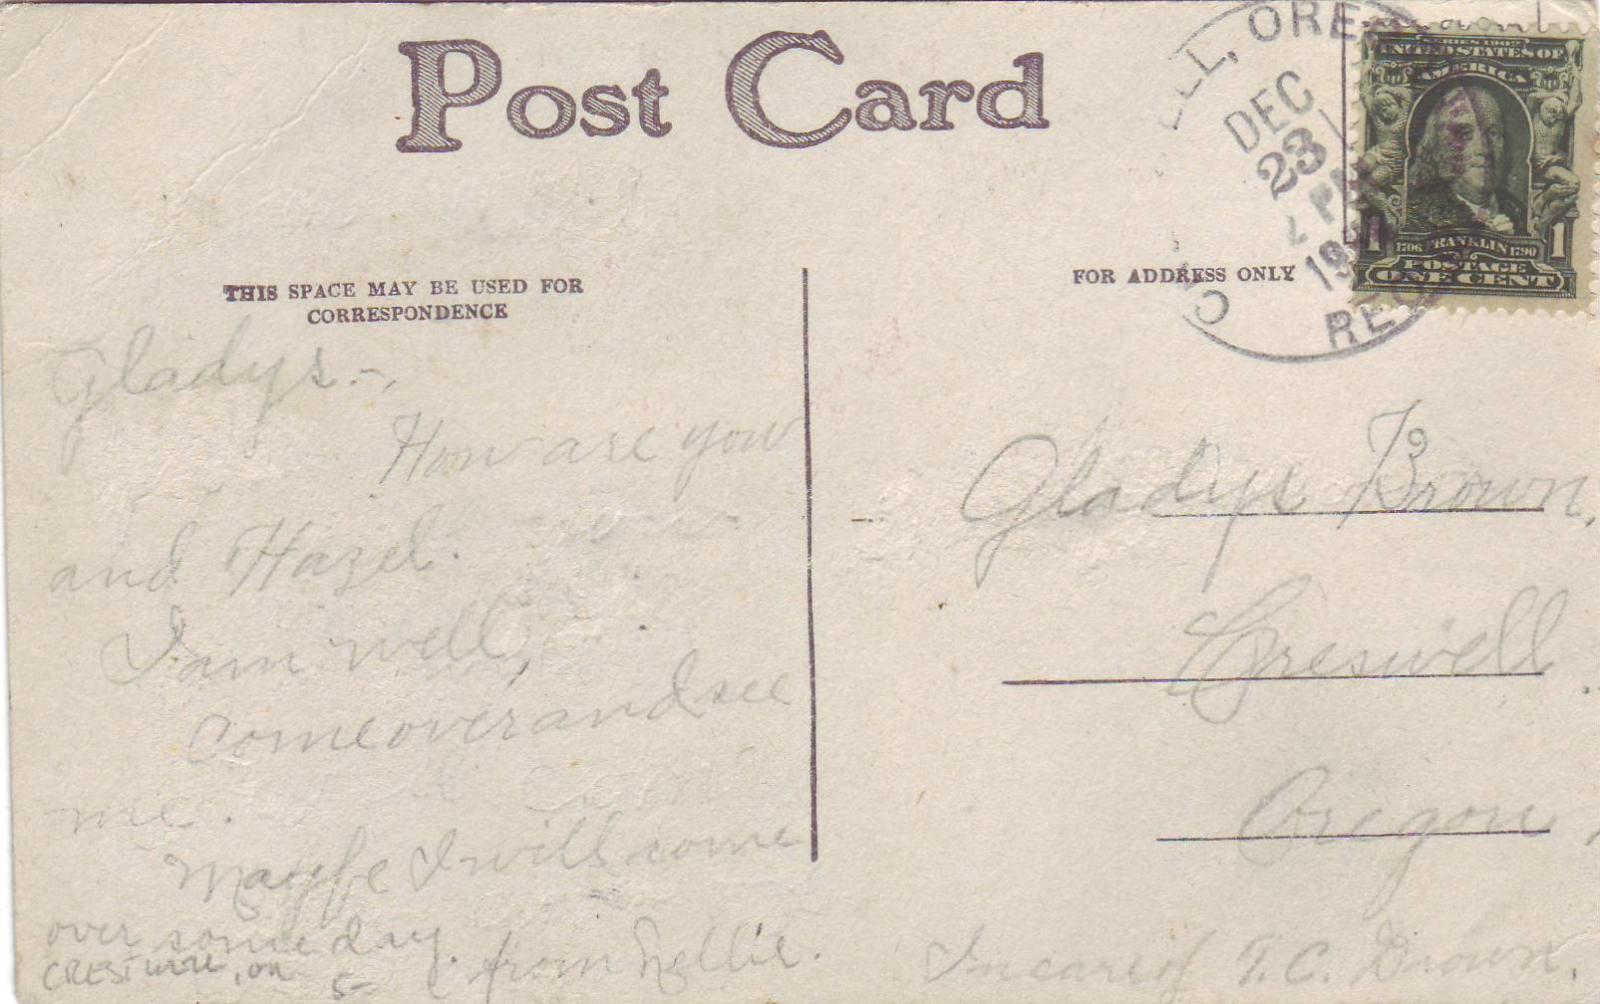 Post Card
THIS SPACE MAY BE USED FOR
CORRESPONDENCE
FOR ADDRESS ONLY
ELL, ORE
DEC
23
PM
19
REC
SERIES 1902
UNITED STATES OF
AMERICA
1706 FRANKLIN 1790
1 1
POSTAGE
ONE CENT
Gladys.-,
How are you
and Hazel.
I am well,
come over and see
me.
Maybe I will come
over some day.
from Nellie.
Gladys Brown,
Creswell
Oregon,
In care of T. C. Brown.
5-